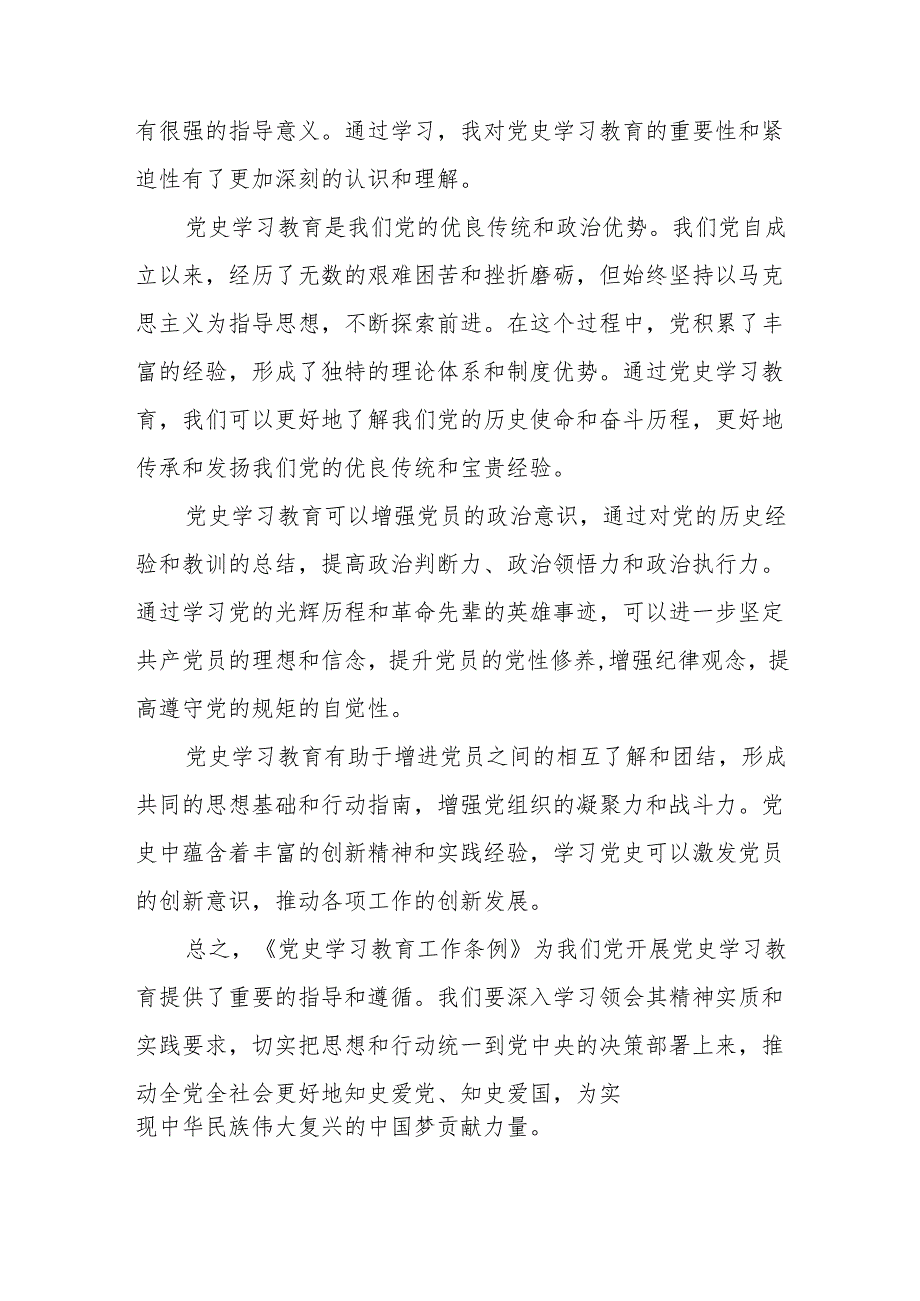 有很强的指导意义。通过学习，我对党史学习教育的重要性和紧
迫性有了更加深刻的认识和理解。
党史学习教育是我们党的优良传统和政治优势。我们党自成
立以来，经历了无数的艰难困苦和挫折磨砺，但始终坚持以马克
思主义为指导思想，不断探索前进。在这个过程中，党积累了丰
富的经验，形成了独特的理论体系和制度优势。通过党史学习教
育，我们可以更好地了解我们党的历史使命和奋斗历程，更好地
传承和发扬我们党的优良传统和宝贵经验。
党史学习教育可以增强党员的政治意识，通过对党的历史经
验和教训的总结，提高政治判断力、政治领悟力和政治执行力。
通过学习党的光辉历程和革命先辈的英雄事迹，可以进一步坚定
共产党员的理想和信念，提升党员的党性修养,增强纪律观念，提
高遵守党的规矩的自觉性。
党史学习教育有助于增进党员之间的相互了解和团结，形成
共同的思想基础和行动指南，增强党组织的凝聚力和战斗力。党
史中蕴含着丰富的创新精神和实践经验，学习党史可以激发党员
的创新意识，推动各项工作的创新发展。
总之，《党史学习教育工作条例》为我们党开展党史学习教
育提供了重要的指导和遵循。我们要深入学习领会其精神实质和
实践要求，切实把思想和行动统一到党中央的决策部署上来，推
动全党全社会更好地知史爱党、知史爱国，为实
现中华民族伟大复兴的中国梦贡献力量。